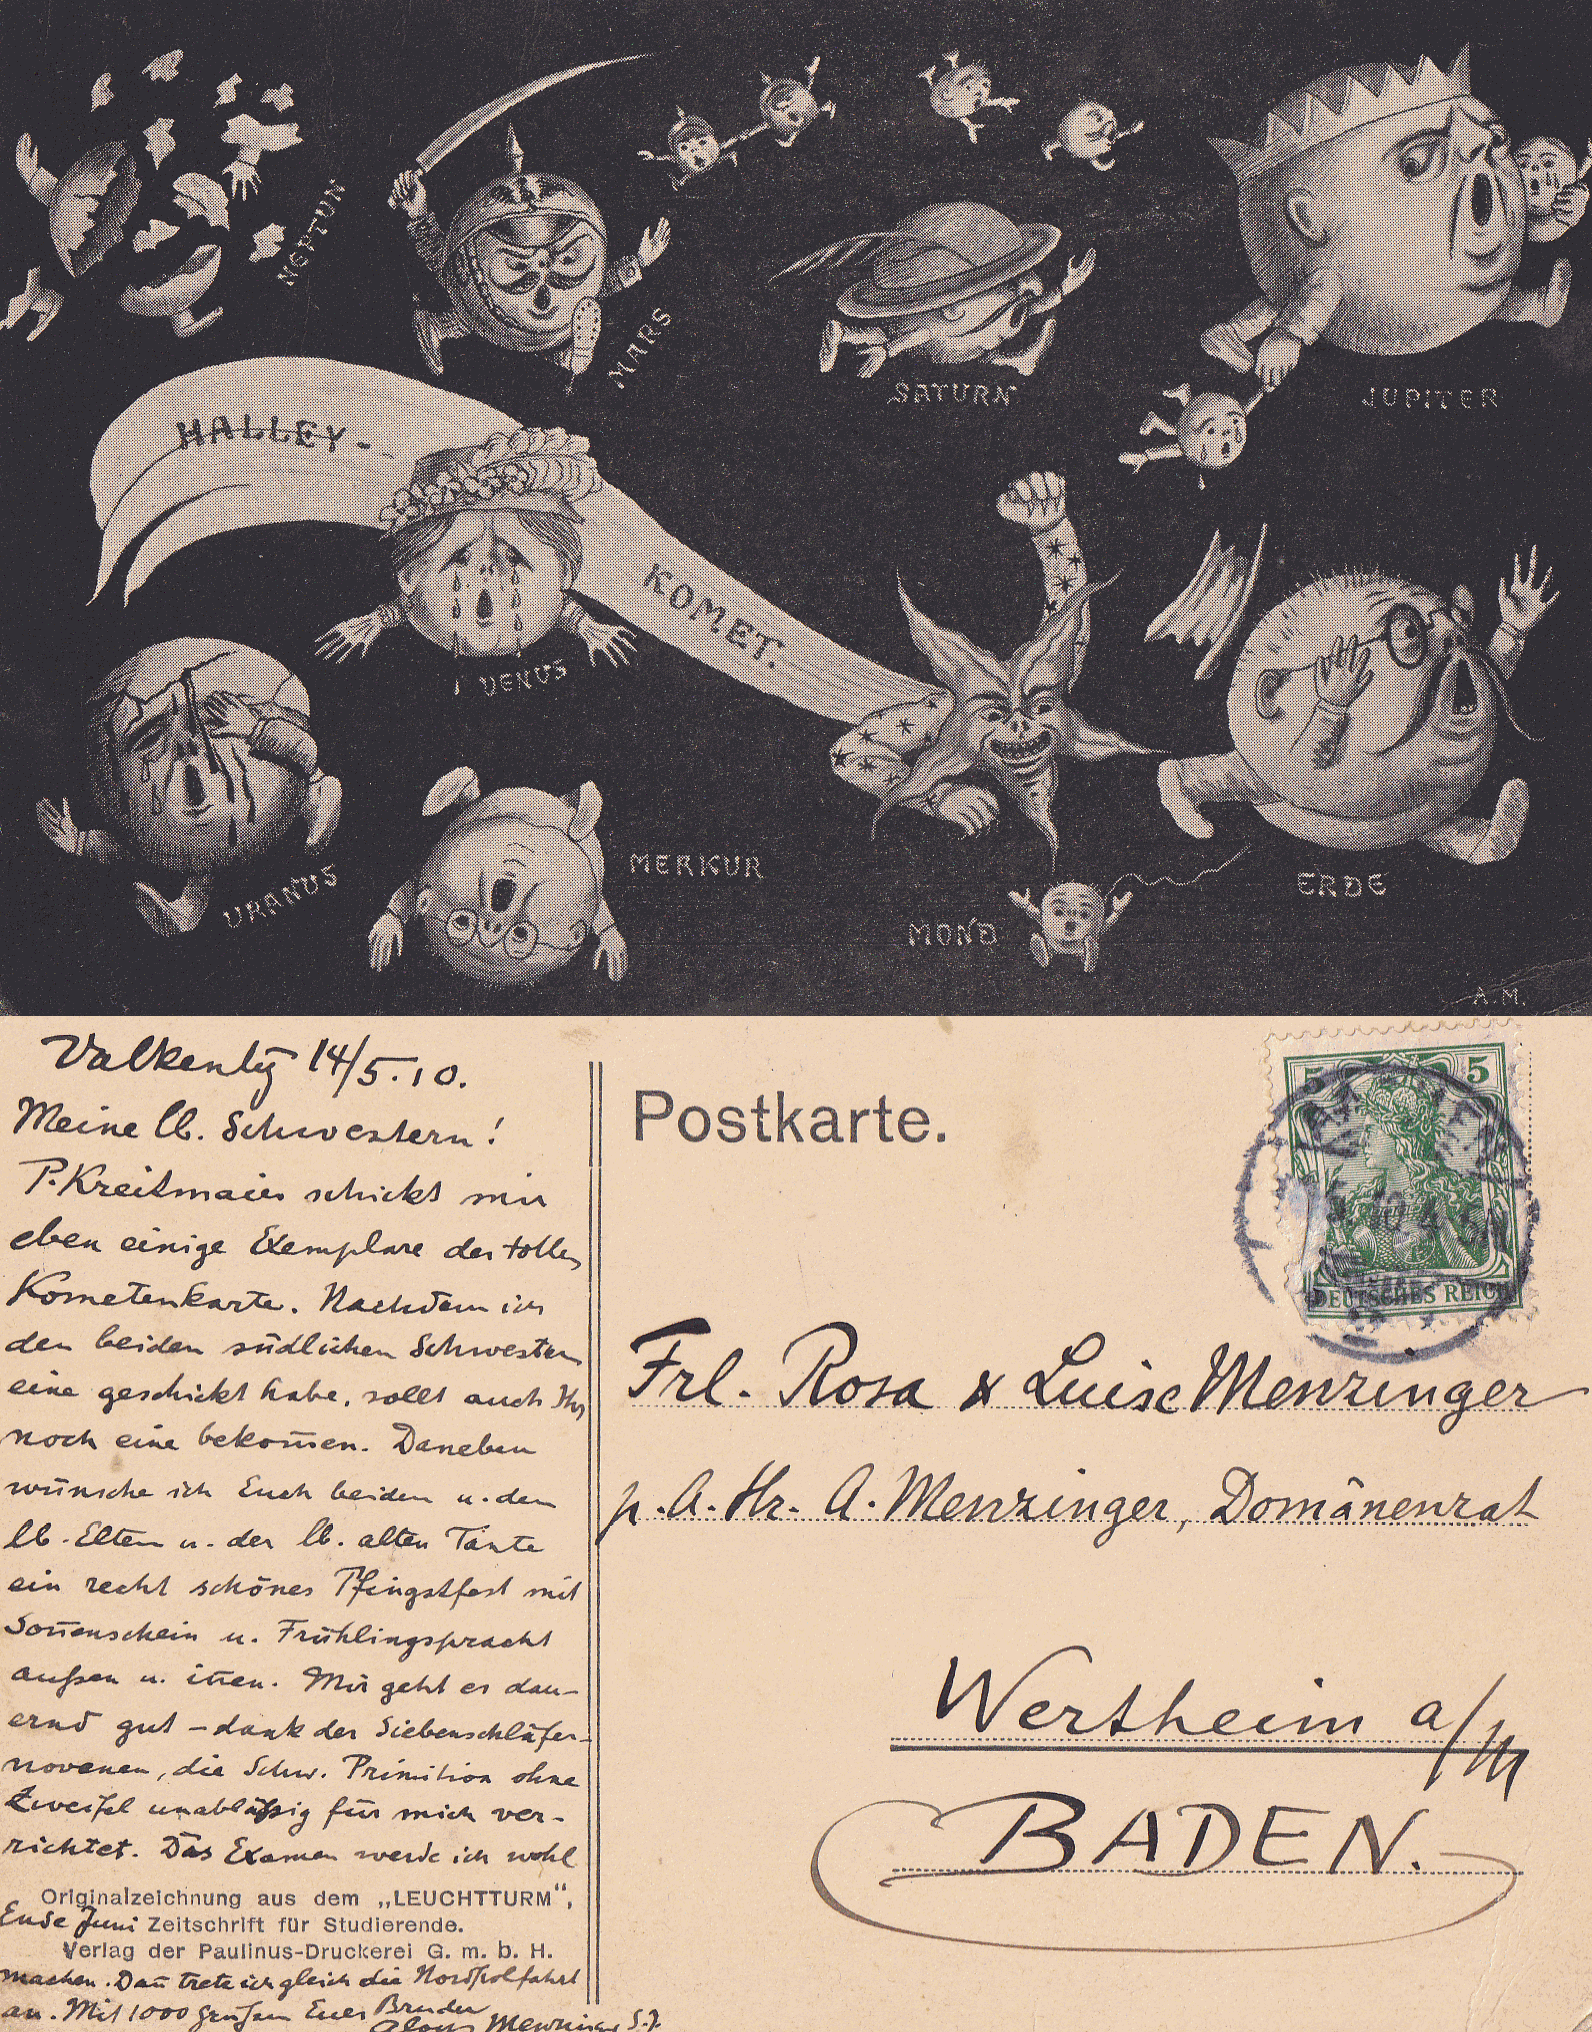 NEPTUN
MARS
SATURN
JUPITER
HALLEY-
KOMET.
VENUS
URANUS
MERKUR
MOND
ERDE
A. M.
Valkenbg 14/5.10.
Meine lb. Schwestern!
P. Kreitmaier schickt mir
eben einige Exemplare der tollen
Kometenkarte. Nachdem ich
den beiden südlichen Schwestern
eine geschickt habe, sollt auch Ihr
noch eine bekom̄en. Daneben
wünsche ich Euch beiden u. den
lb. Eltern u. der lb. alten Tante
ein recht schönes Pfingstfest mit
Son̄enschein u. Frühlingspracht
außen u. in̄en. Mir geht es dau-
ernd gut – dank der Siebenschläfer-
novenen, die Schw. Primitiva ohne
Zweifel unabläßig für mich ver-
richtet. Das Examen werde ich wohl
Originalzeichnung aus dem „LEUCHTTURM",
Ende Juni Zeitschrift für Studierende.
Verlag der Paulinus-Druckerei G. m. b. H.
machen. Dan̄ trete ich gleich die Nordpolfahrt
an. Mit 1000 Grüßen Euer Bruder
Aloys Menzinger S.J.
Postkarte.
5 5
DEUTSCHES REICH
Frl. Rosa & Luise Menzinger
p. A. Hr. A. Menzinger, Domänenrat
Wertheim a/M
BADEN.